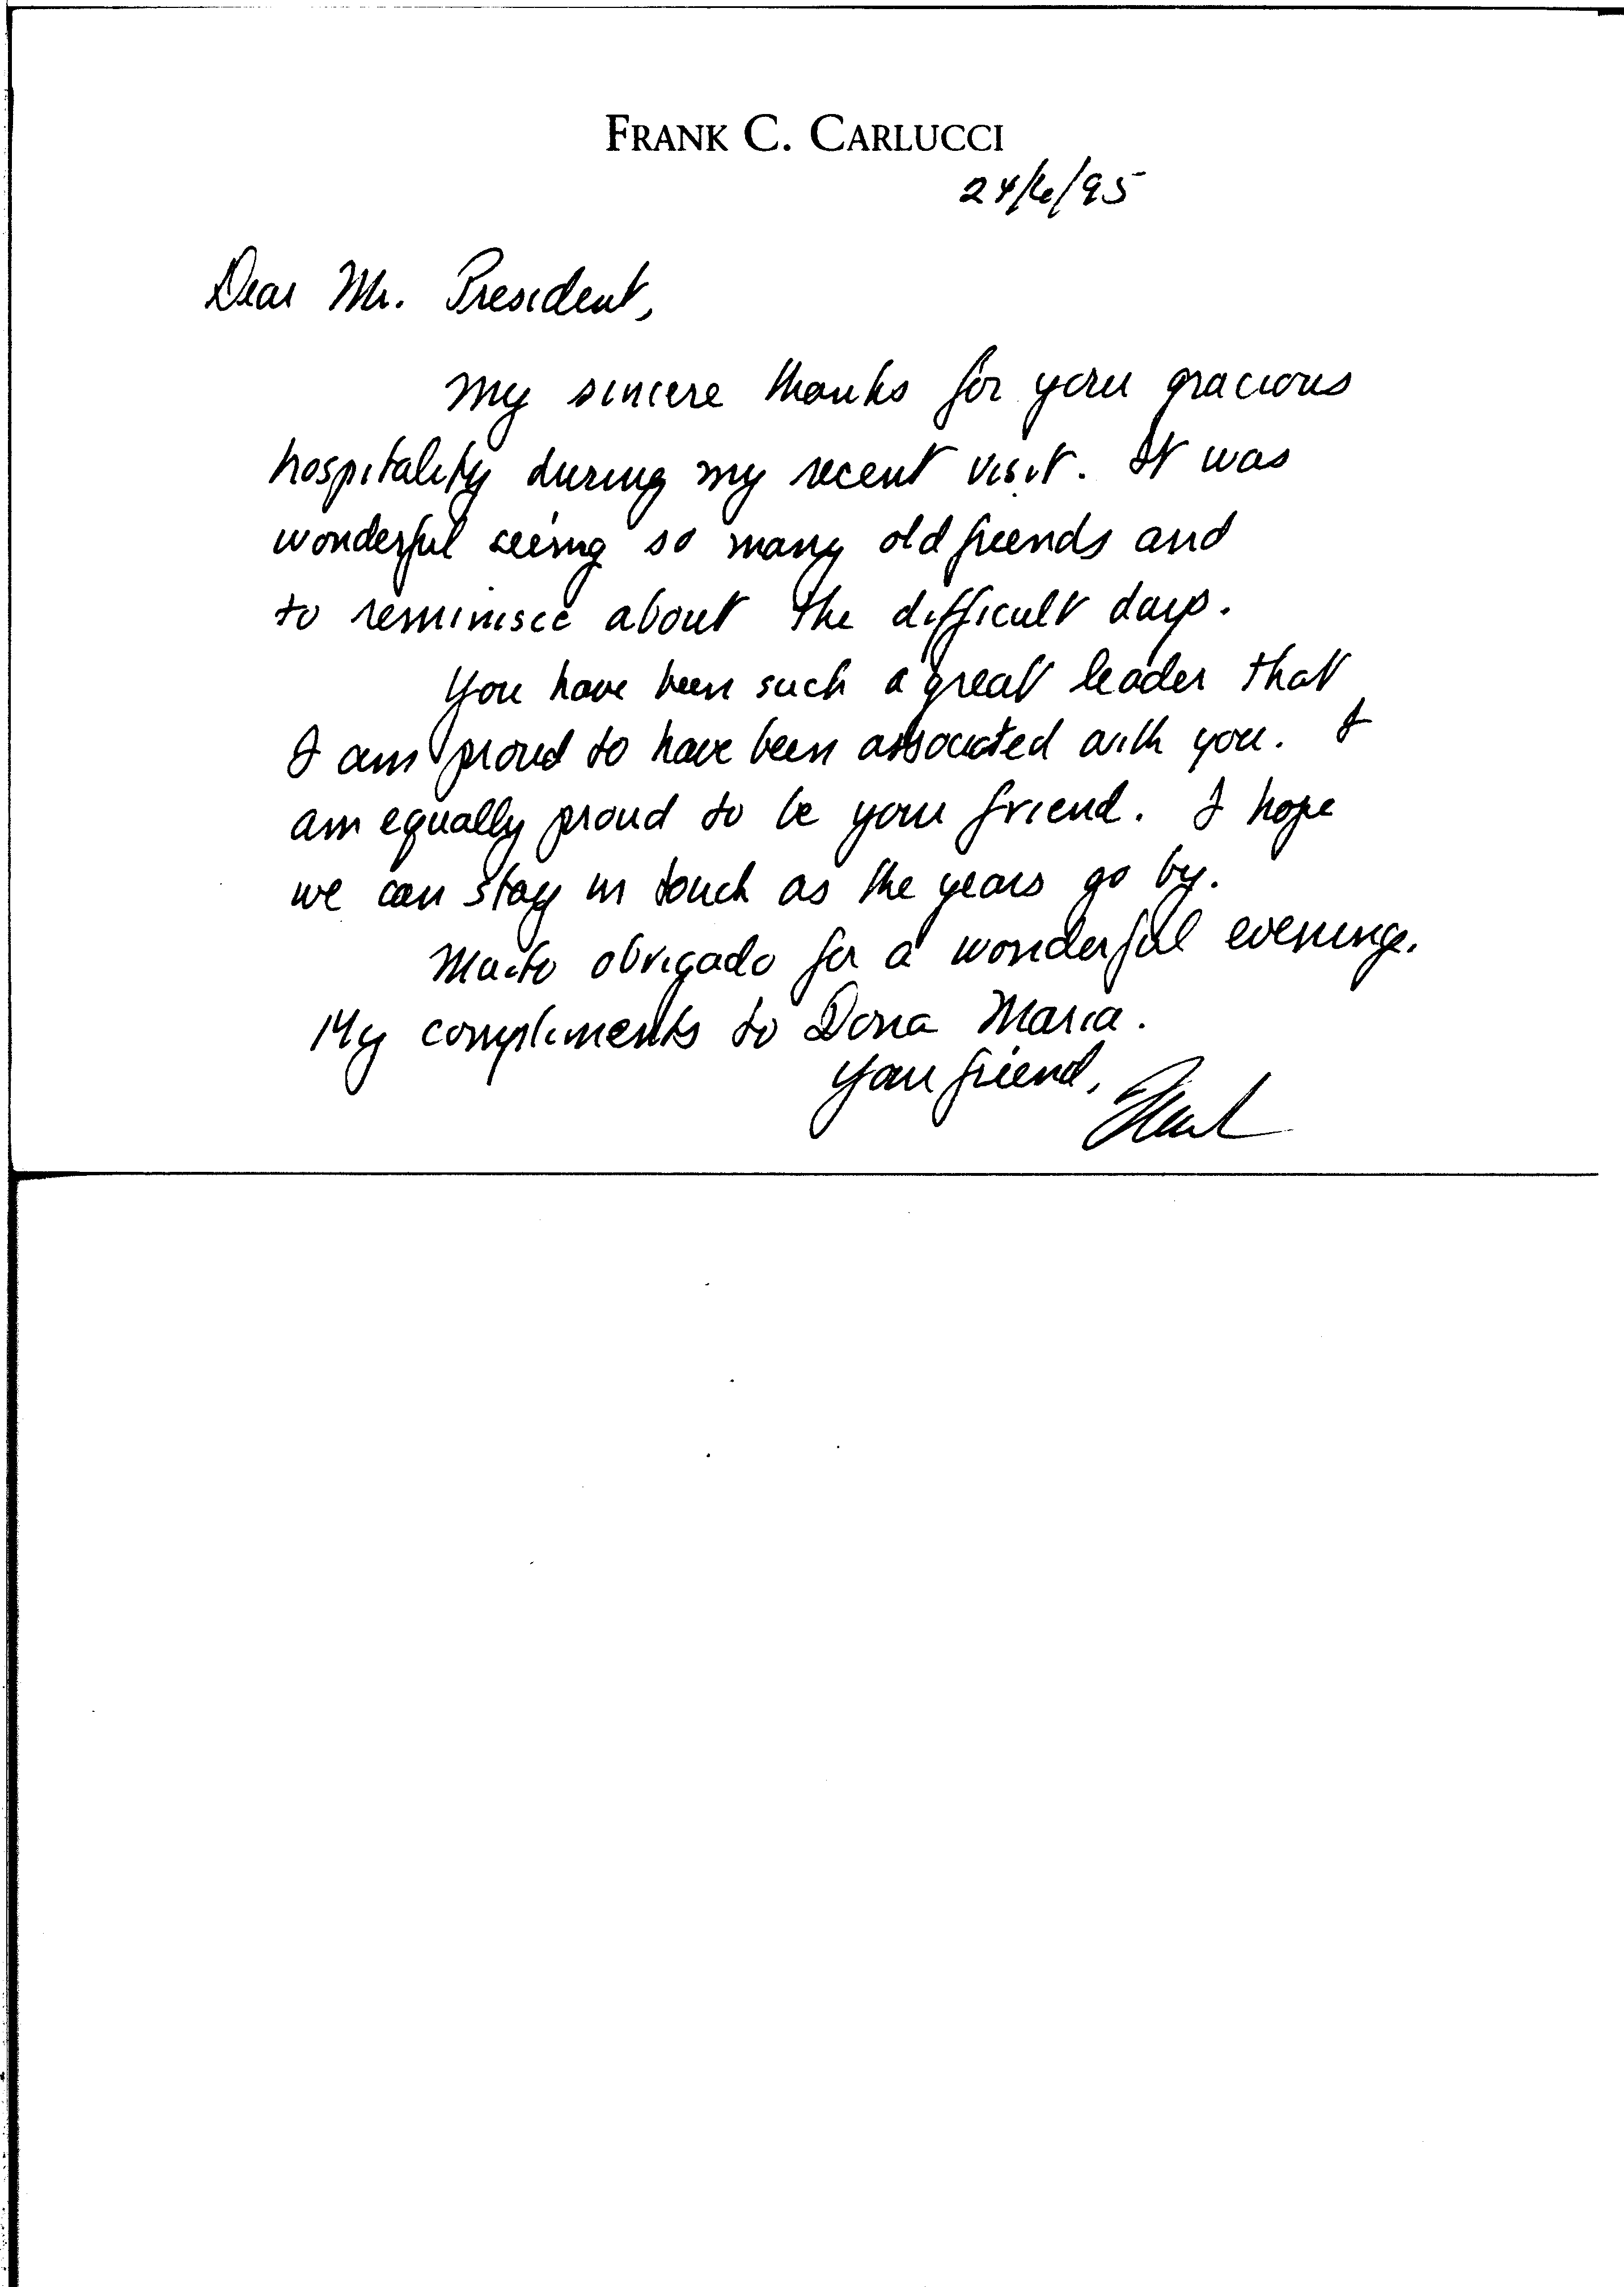 FRANK C. CARLUCCI
24/6/95
Dear Mr. President,
My sincere thanks for your gracious
hospitality during my recent visit. It was
wonderful seeing so many old friends and
to reminisce about the difficult days.
You have been such a great leader that
I am proud to have been associated with you. I
am equally proud to be your friend. I hope
we can stay in touch as the years go by.
Muito obrigado for a wonderful evening.
My compliments to Dona Maria.
Your friend,
Frank